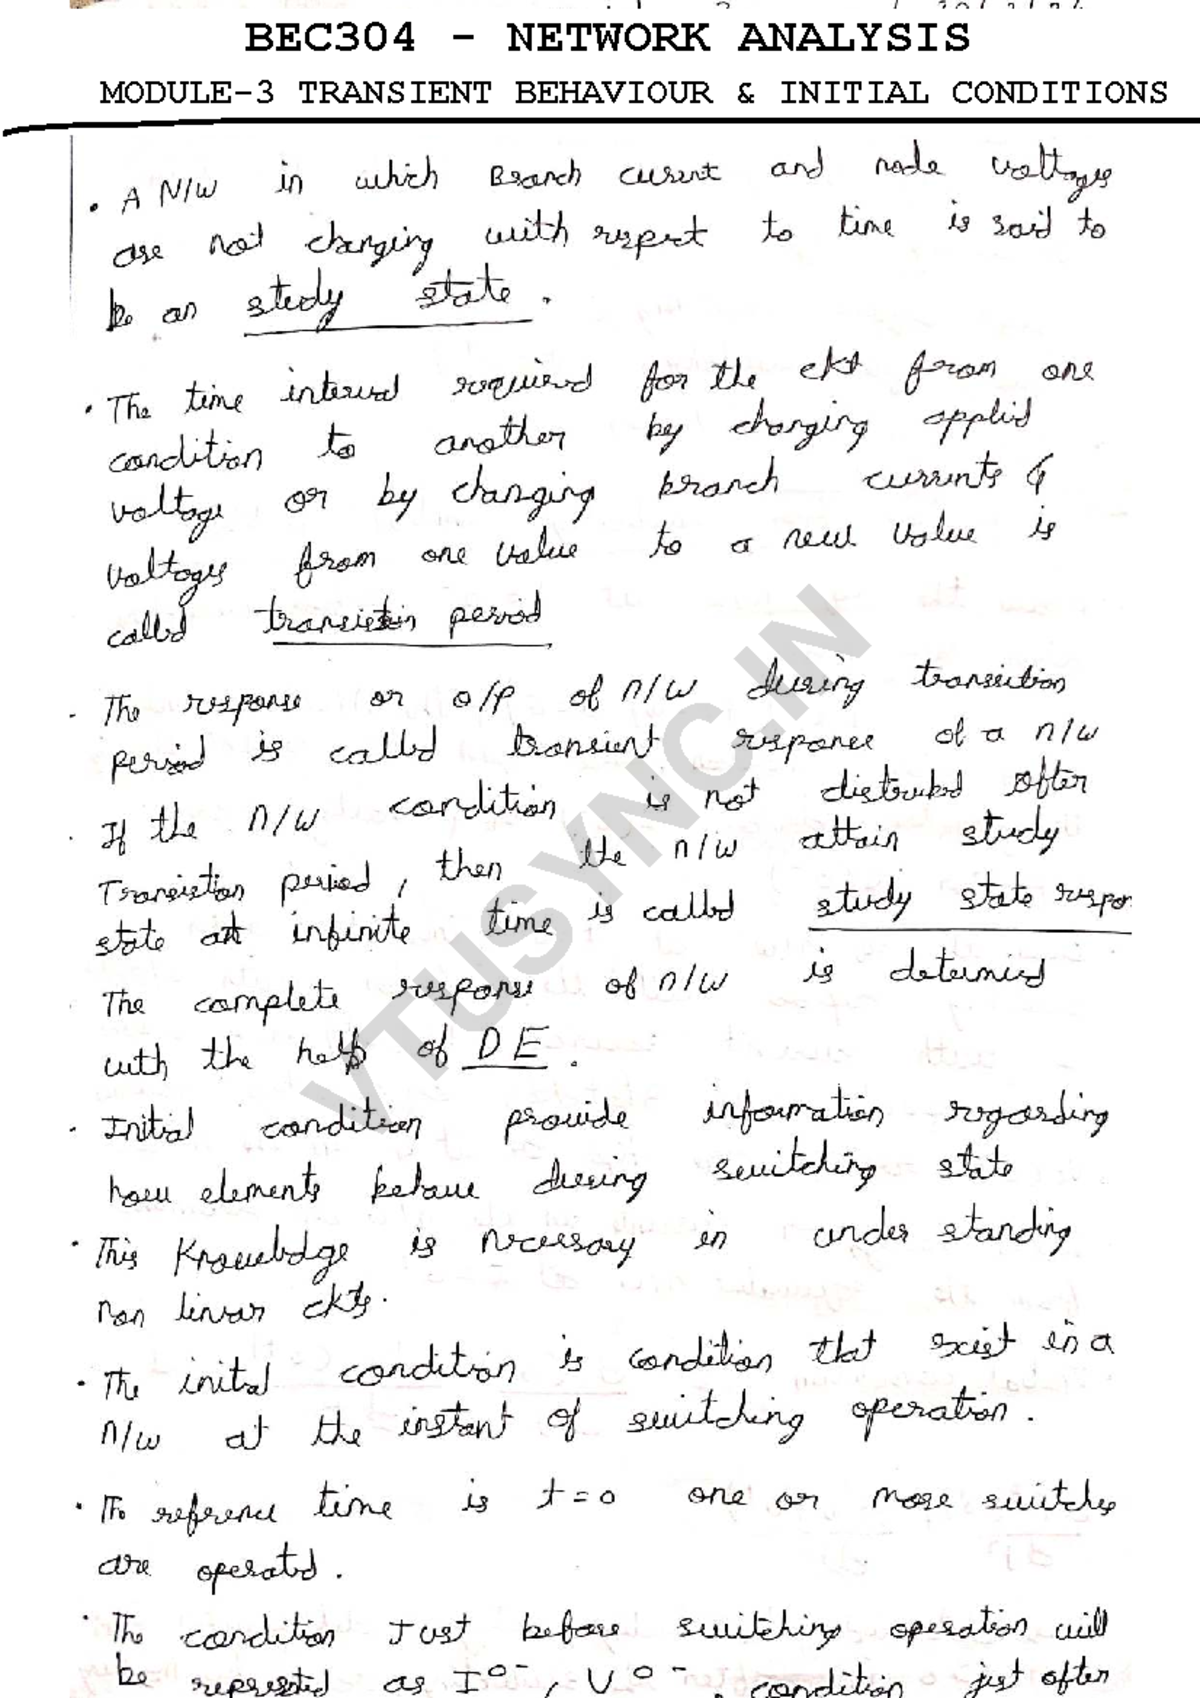 BEC304 - NETWORK ANALYSIS
MODULE-3 TRANSIENT BEHAVIOUR & INITIAL CONDITIONS
• A N/W in which Branch current and node voltages
are not changing with respect to time is said to
be an study state.
• The time interval required for the ckt from one
condition to another by changing applied
voltage or by changing branch currents &
voltages from one value to a new value is
called period
• The response or o/p of n/w during transition
period is called transient response of a n/w
• If the n/w condition is not distrubed after
Transistion period, then the n/w attain study
state at infinite time is called study state respon
The complete response of n/w is determined
with the help of DE.
• Initial condition provide information regarding
how elements behave during switching state
• This Knowledge is necessary in under standing
non linear ckts.
• The initial condition is condition that exist in a
n/w at the instant of switching operation.
• The reference time is t=0 one or more switches
are operated.
• The condition Just before switching operation will
be represented as I0-, V0-, condition just after
VTUSYNC.IN